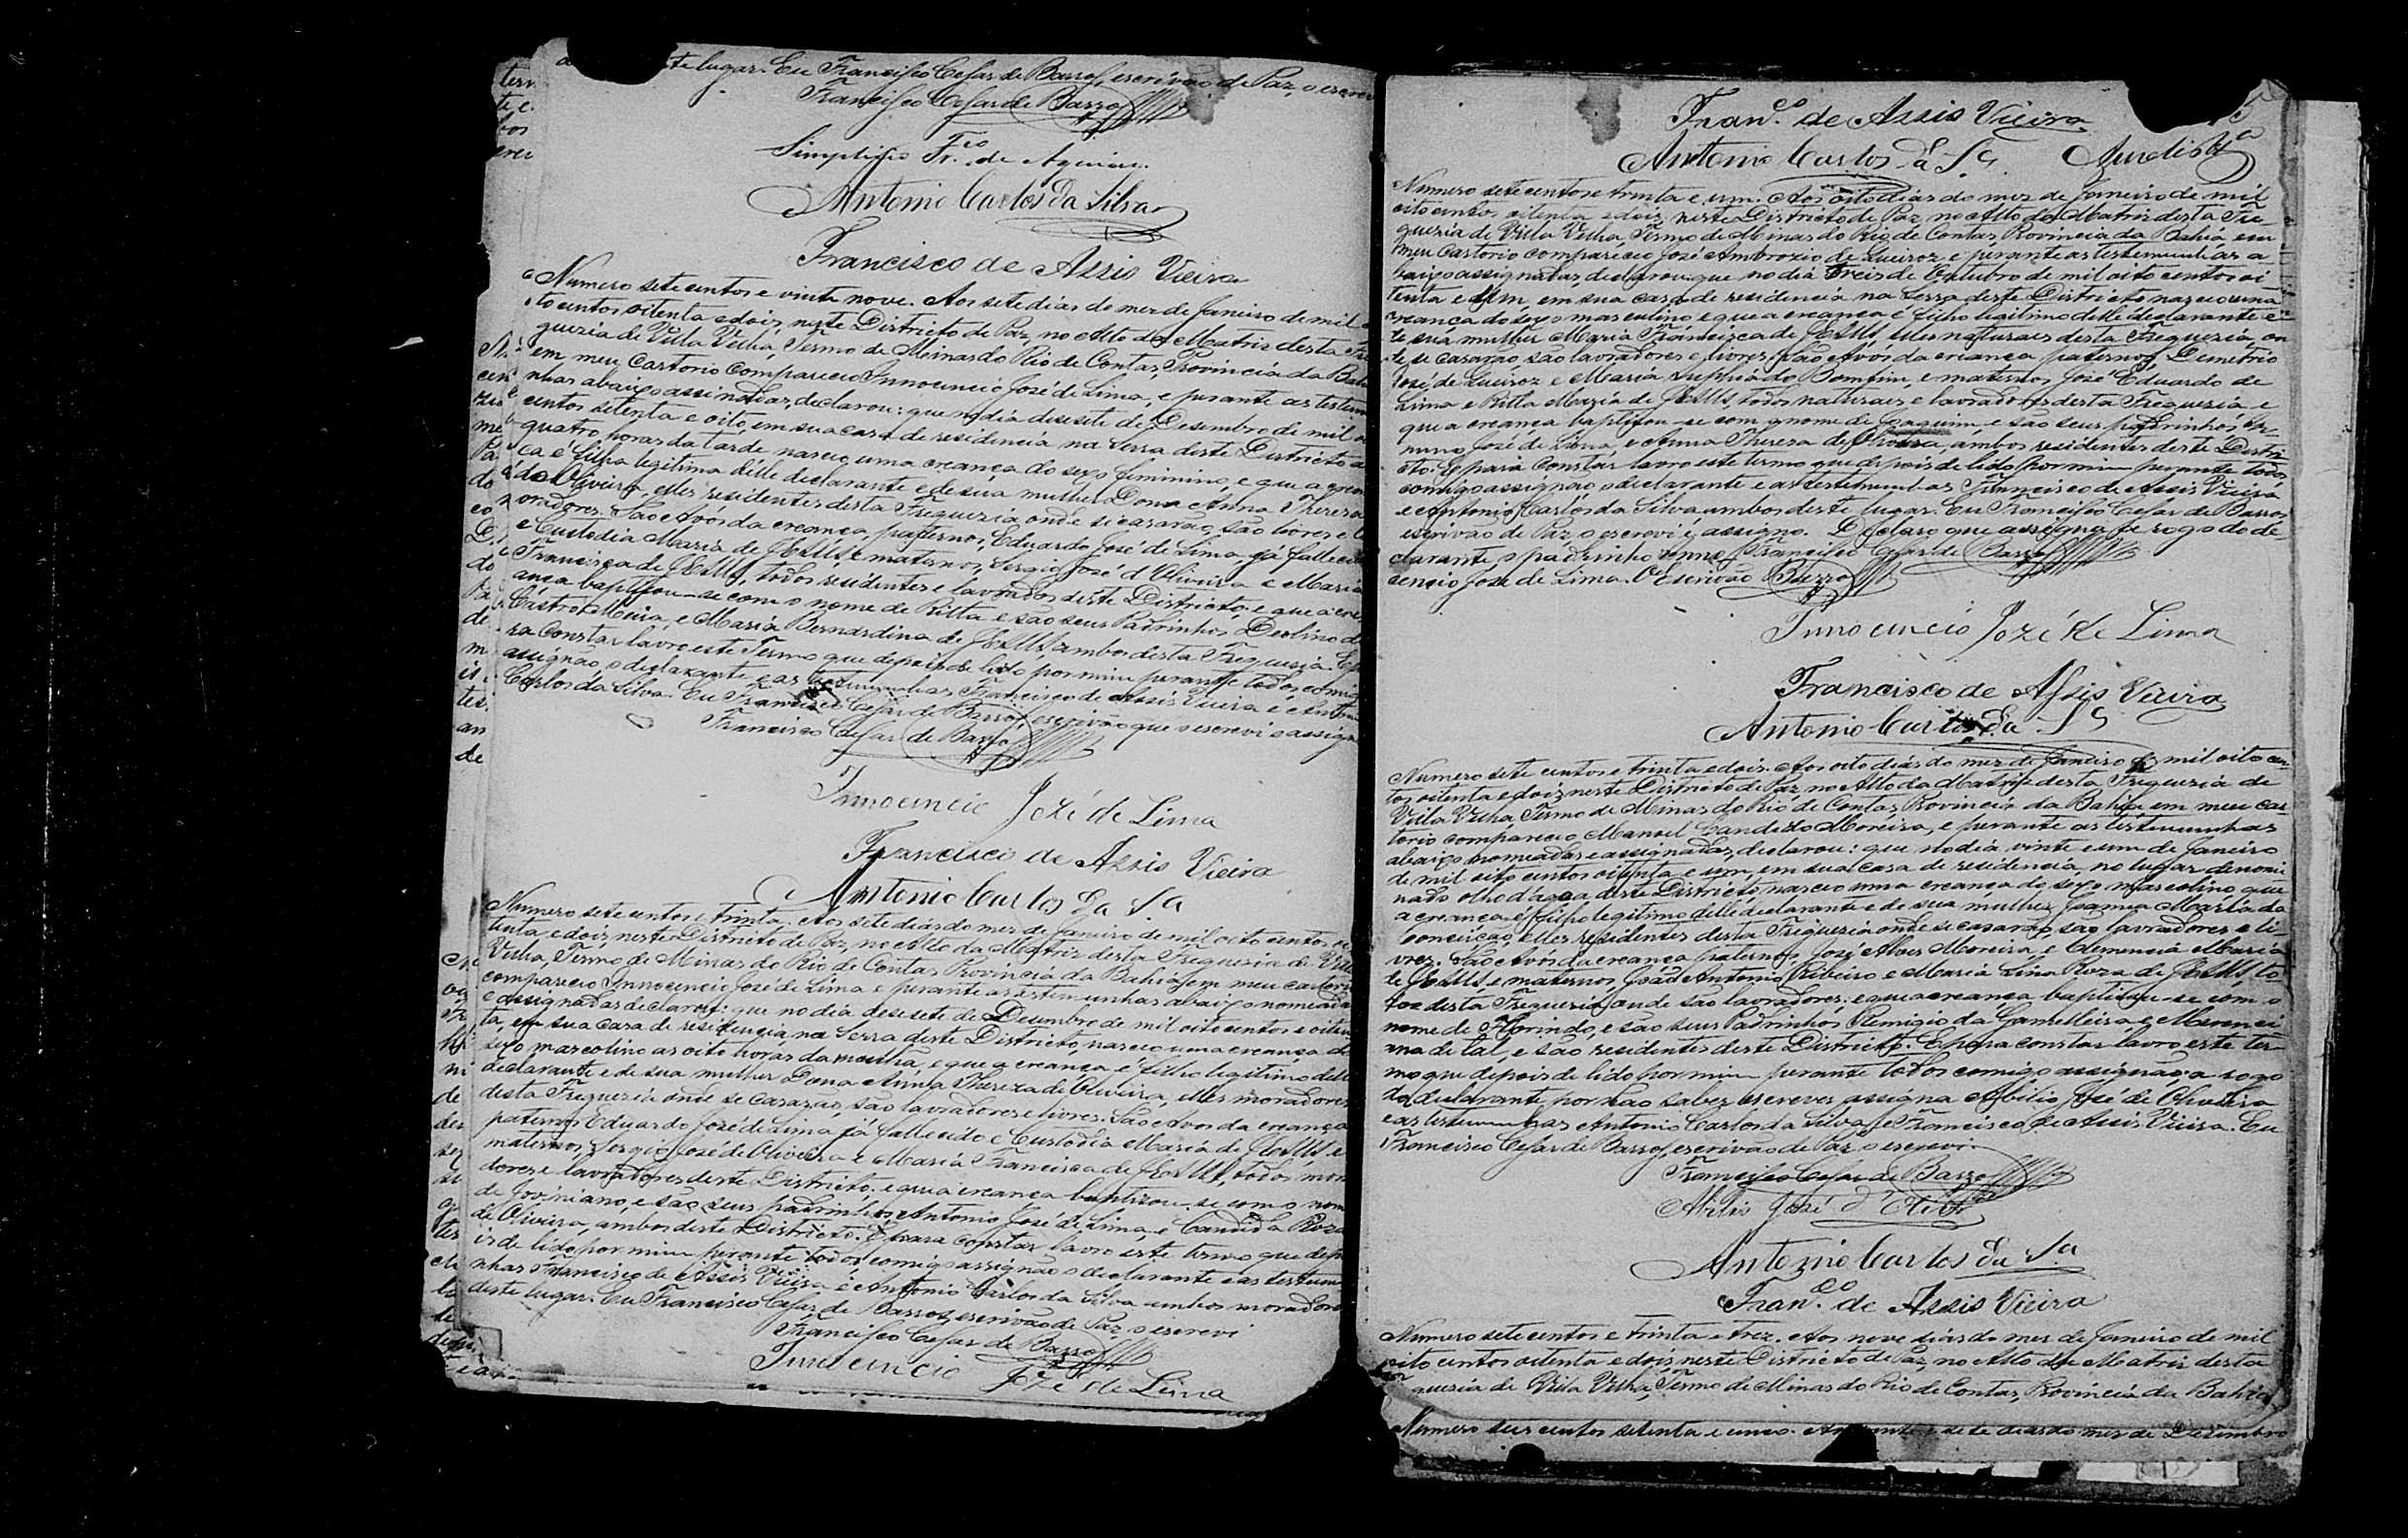 te lugar. Eu Francisco Cesar de Barros, escrivão de Paz, o escrevi
Francisco Cesar de Barros
Simplicio Fr.co de Aguiar
Antonio Carlos da Silva
Francisco de Assis Vieira
Numero sete centos e vinte nove. Aos sete dias do mez de Janeiro de mil
oitocentos oitenta e dois, neste Districto de Paz, no Alto da Matriz desta Fre
guezia de Villa Velha, Termo de Minas do Rio de Contas, Provincia da Bahia
em meu Cartorio compareceu Innocencio José de Lima, e perante as testemu
nhas abaixo assinadas, declarou: que no dia desesete de Desembro de mil oi
centos setenta e oito, em sua casa de residencia na Serra deste Districto as
quatro horas da tarde nasceu uma creança do sexo feminino, e que a crean
ça é filha legitima delle declarante e de sua mulher Dona Anna Thereza
de Oliveira, elles residentes desta Freguezia onde se casarão, são livres e la
vradores. São Avós da creança, paternos, Eduardo José de Lima, já fallecido
e Custodia Maria de JESUS, e maternos, Sergio José d'Oliveira e Maria
Francisca de JESUS, todos residentes e lavradores deste Districto, e que a cre
ança baptisou-se com o nome de Ritta e são seus Padrinhos Deolino de
Castro Meira, e Maria Bernardina de JESUS, ambos desta Freguezia. E pa
ra constar lavro este Termo que depois de lido por mim perante todos comigo
assignão, o declarante e as testemunhas, Francisco de Assis Vieira e Antonio
Carlos da Silva. Eu Francisco Cesar de Barros, escrivão que o escrevi e assigno
Francisco Cesar de Barros
Innocencio Jozé de Lima
Francisco de Assis Vieira
Antonio Carlos da S.a
Numero sete centos e trinta. Aos sete dias do mez de Janeiro de mil oito centos oi
tenta e dois, neste Districto de Paz, no Alto da Matriz desta Freguezia de Villa
Velha, Termo de Minas do Rio de Contas Provincia da Bahia, em meu cartorio
compareceu Innocencio José de Lima e perante as testemunhas abaixo nomeadas
e assignadas declarou: que no dia desesete de Desembro de mil oito centos e oiten
ta, em sua casa de residencia na Serra deste Districto, nasceu uma creança do
sexo mascolino as oito horas da manhã, e que a creança é filho legitimo delle
declarante e de sua mulher Dona Anna Thereza de Oliveira, elles moradores
desta Freguezia onde se casarão, são lavradores e livres. São Avós da creança
paternos Eduardo José de Lima já fallecido e Custodia Maria de JESUS e
maternos, Sergio José de Oliveira e Maria Francisca de JESUS, todos mora
dores e lavradores deste Districto, e que a creança baptizou-se com o nome
de Joviniano, e são seus padrinhos Antonio José de Lima, e Candida Roza
de Oliveira, ambos deste Districto. E para constar lavro este termo que depo
is de lido por mim perante todos, comigo assignão o declarante e as testemu
nhas Francisco de Assis Vieira e Antonio Carlos da Silva ambos moradores
deste lugar. Eu Francisco Cesar de Barros, escrivão de Paz o escrevi
Francisco Cesar de Barros
Innocencio Jozé de Lima
Fran.co de Assis Vieira
Antonio Carlos da S.a
Numero sete centos e trinta e um. Aos oito dias do mez de Janeiro de mil
oito centos oitenta e dois, neste Districto de Paz, no Alto da Matriz desta Fre-
guezia de Villa Velha, Termo de Minas do Rio de Contas, Provincia da Bahia, em
meu Cartorio compareceu José Ambrozio de Queiroz e perante as testemunhas a-
baixo assignadas, declarou que no dia treis de Outubro de mil oito centos oi-
tenta e um, em sua casa de residencia na Serra deste Districto nasceu uma
creança do sexo mascolino e que a creança é filho legitimo delle declarante e
de sua mulher Maria Francisca de JESUS, elles naturaes desta Freguezia, on-
de se casarão são lavradores e livres. São Avós da creança paternos Demetrio
José de Queiroz e Maria do Bomfim, e maternos José Eduardo de
Lima e Ritta Maria de JESUS, todos naturaes e lavradores desta Freguezia e
que a creança baptisou-se com o nome de Joaquim e são seus padrinhos
José de Lima, e Anna Thereza de Oliveira, ambos residentes deste Distri-
cto. E para constar lavro este termo que depois de lido por mim perante todos
comigo assignão, o declarante e as testemunhas Francisco de Assis Vieira
e Antonio Carlos da Silva ambos deste lugar. Eu Francisco Cesar de Barros
escrivão de Paz o escrevi e assigno. Declaro que assigna a rogo do de-
clarante, o padrinho Inno Francisco Cesar de Barros
cencio José de Lima. O Escrivão Barros
Innocencio Jozé de Lima
Francisco de Assis Vieira
Antonio Carlos da S.a
Numero sete centos e trinta e dois. Aos oito dias do mez de Janeiro de mil oito cen-
tos oitenta e dois neste Districto de Paz no Alto da Matriz desta Freguezia de
Villa Velha, Termo de Minas do Rio de Contas, Provincia da Bahia em meu car-
torio compareceu Manoel Candido Moreira, e perante as testemunhas
abaixo nomeadas e assignadas, declarou: que no dia vinte e um de Janeiro
de mil oito centos oitenta e um, em sua casa de residencia, no lugar denomi
nado olho d'agoa, deste Districto, nasceu uma creança do sexo mascolino que
a creança é filho legitimo delle declarante e de sua mulher Joanna Maria da
Conceicão, elles residentes desta Freguezia onde se casarão, são lavradores e li-
vres. São Avós da creança paternos, José Alves Moreira, e Clemencia Maria
de JESUS, e maternos, João Antonio Ribeiro e Maria Lina Roza de JESUS, to-
dos desta Freguezia, onde são lavradores; e que a creança baptisou-se com o
nome de Florindo, e são seus Padrinhos, Remigio da Gamelleira e Merenci-
ana de tal, e são residentes deste Districto. E para constar lavro este ter-
mo que depois de lido por mim perante todos comigo assignão, a rogo
do declarante por não saber escrever assigna Abilio José de Oliveira
e as testemunhas Antonio Carlos da Silva, e Francisco de Assis Vieira. Eu
Francisco Cesar de Barros, escrivão de Paz o escrevi
Francisco Cesar de Barros
Abilio José d'Oliv.ra
Antonio Carlos da S.a
Fran.co de Assis Vieira
Numero sete centos e trinta e trez. Aos nove dias do mez de Janeiro de mil
oito centos oitenta e dois, neste Districto de Paz, no Alto da Matriz desta
guezia de Villa Velha, Termo de Minas do Rio de Contas, Provincia da Bahia
Numero seis centos setenta e cinco. Aos sete dias do mez de Desembro